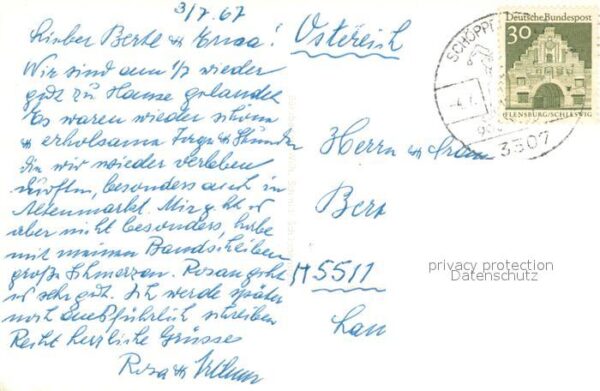 3/7. 67
Lieber Bertl u Erna!
Wir sind am 1/7 wieder
gut zu Hause gelandet
Es waren wieder schöne
u erholsame Tage u Stunden
die wir wieder verleben
durften, besonders auch in
Altenmarkt. Mir geht es
aber nicht besonders, habe
mit meinen Bandscheiben
große Schmerzen. Rosan geht
es sehr gut. Ich werde später
noch ausführlich schreiben
Recht herrliche Grüsse
Rosa u
Östereich
Herrn u
Bert
5511
SCHÖPPE
3307
Deutsche Bundespost
30
FLENSBURG/SCHLESWIG
privacy protection
Datenschutz